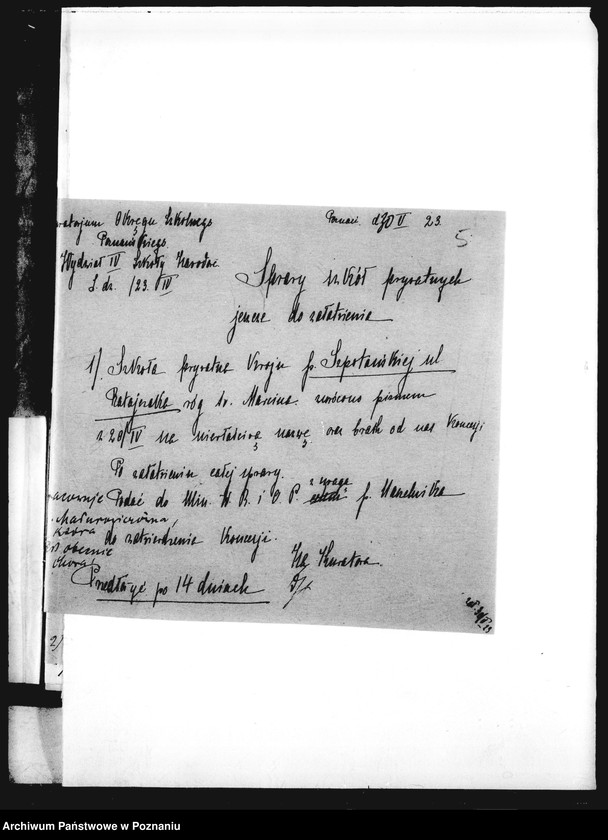 Okręgu Szkolnego
Poznańskiego
Wydział IV Szkoły Narodo
L. dz. /23. IV
Poznań. d. 30 V 23.
5
Sprawy szkół prywatnych
jeszcze do załatwienia
1/. Szkoła prywatna kroju p. Szpotańskiej ul
Ratajczaka róg św. Marcina. zwrócono pismem
z 20/IV na niewłaściwą nazwę oraz brak od nas Koncesji
Po załatwieniu całej sprawy.
z uwagą
Podać do Min. W. R. i O. P. p. Naczelnika
która
do zatwierdzenia Koncesji.
obecnie
chora
Za Kuratora.
Przedłożyć po 14 dniach
2/
Archiwum Państwowe w Poznaniu